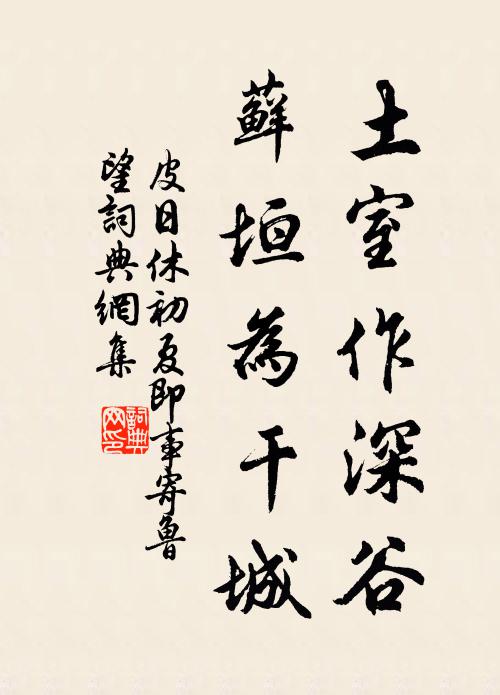 土室作深谷
蘚垣為干城
皮日休初夏即事寄魯
望詞典網集
詞典网印